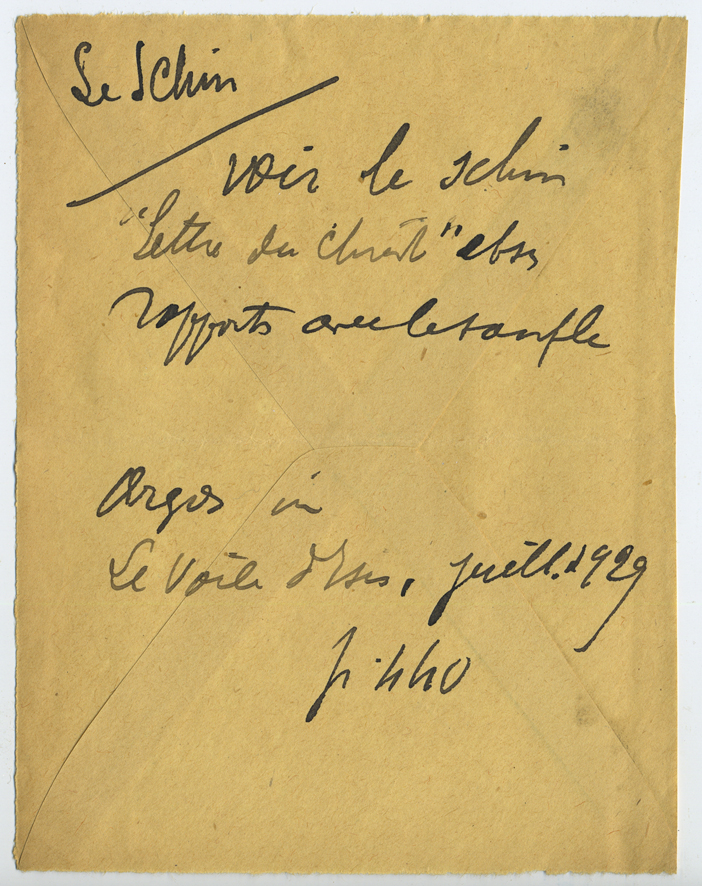 Le Schin
Voir le schin
"Lettre du Christ" et ses
rapports avec le soufle
Argos in
Le Voile d'Isis, juill. 1929
p. 440